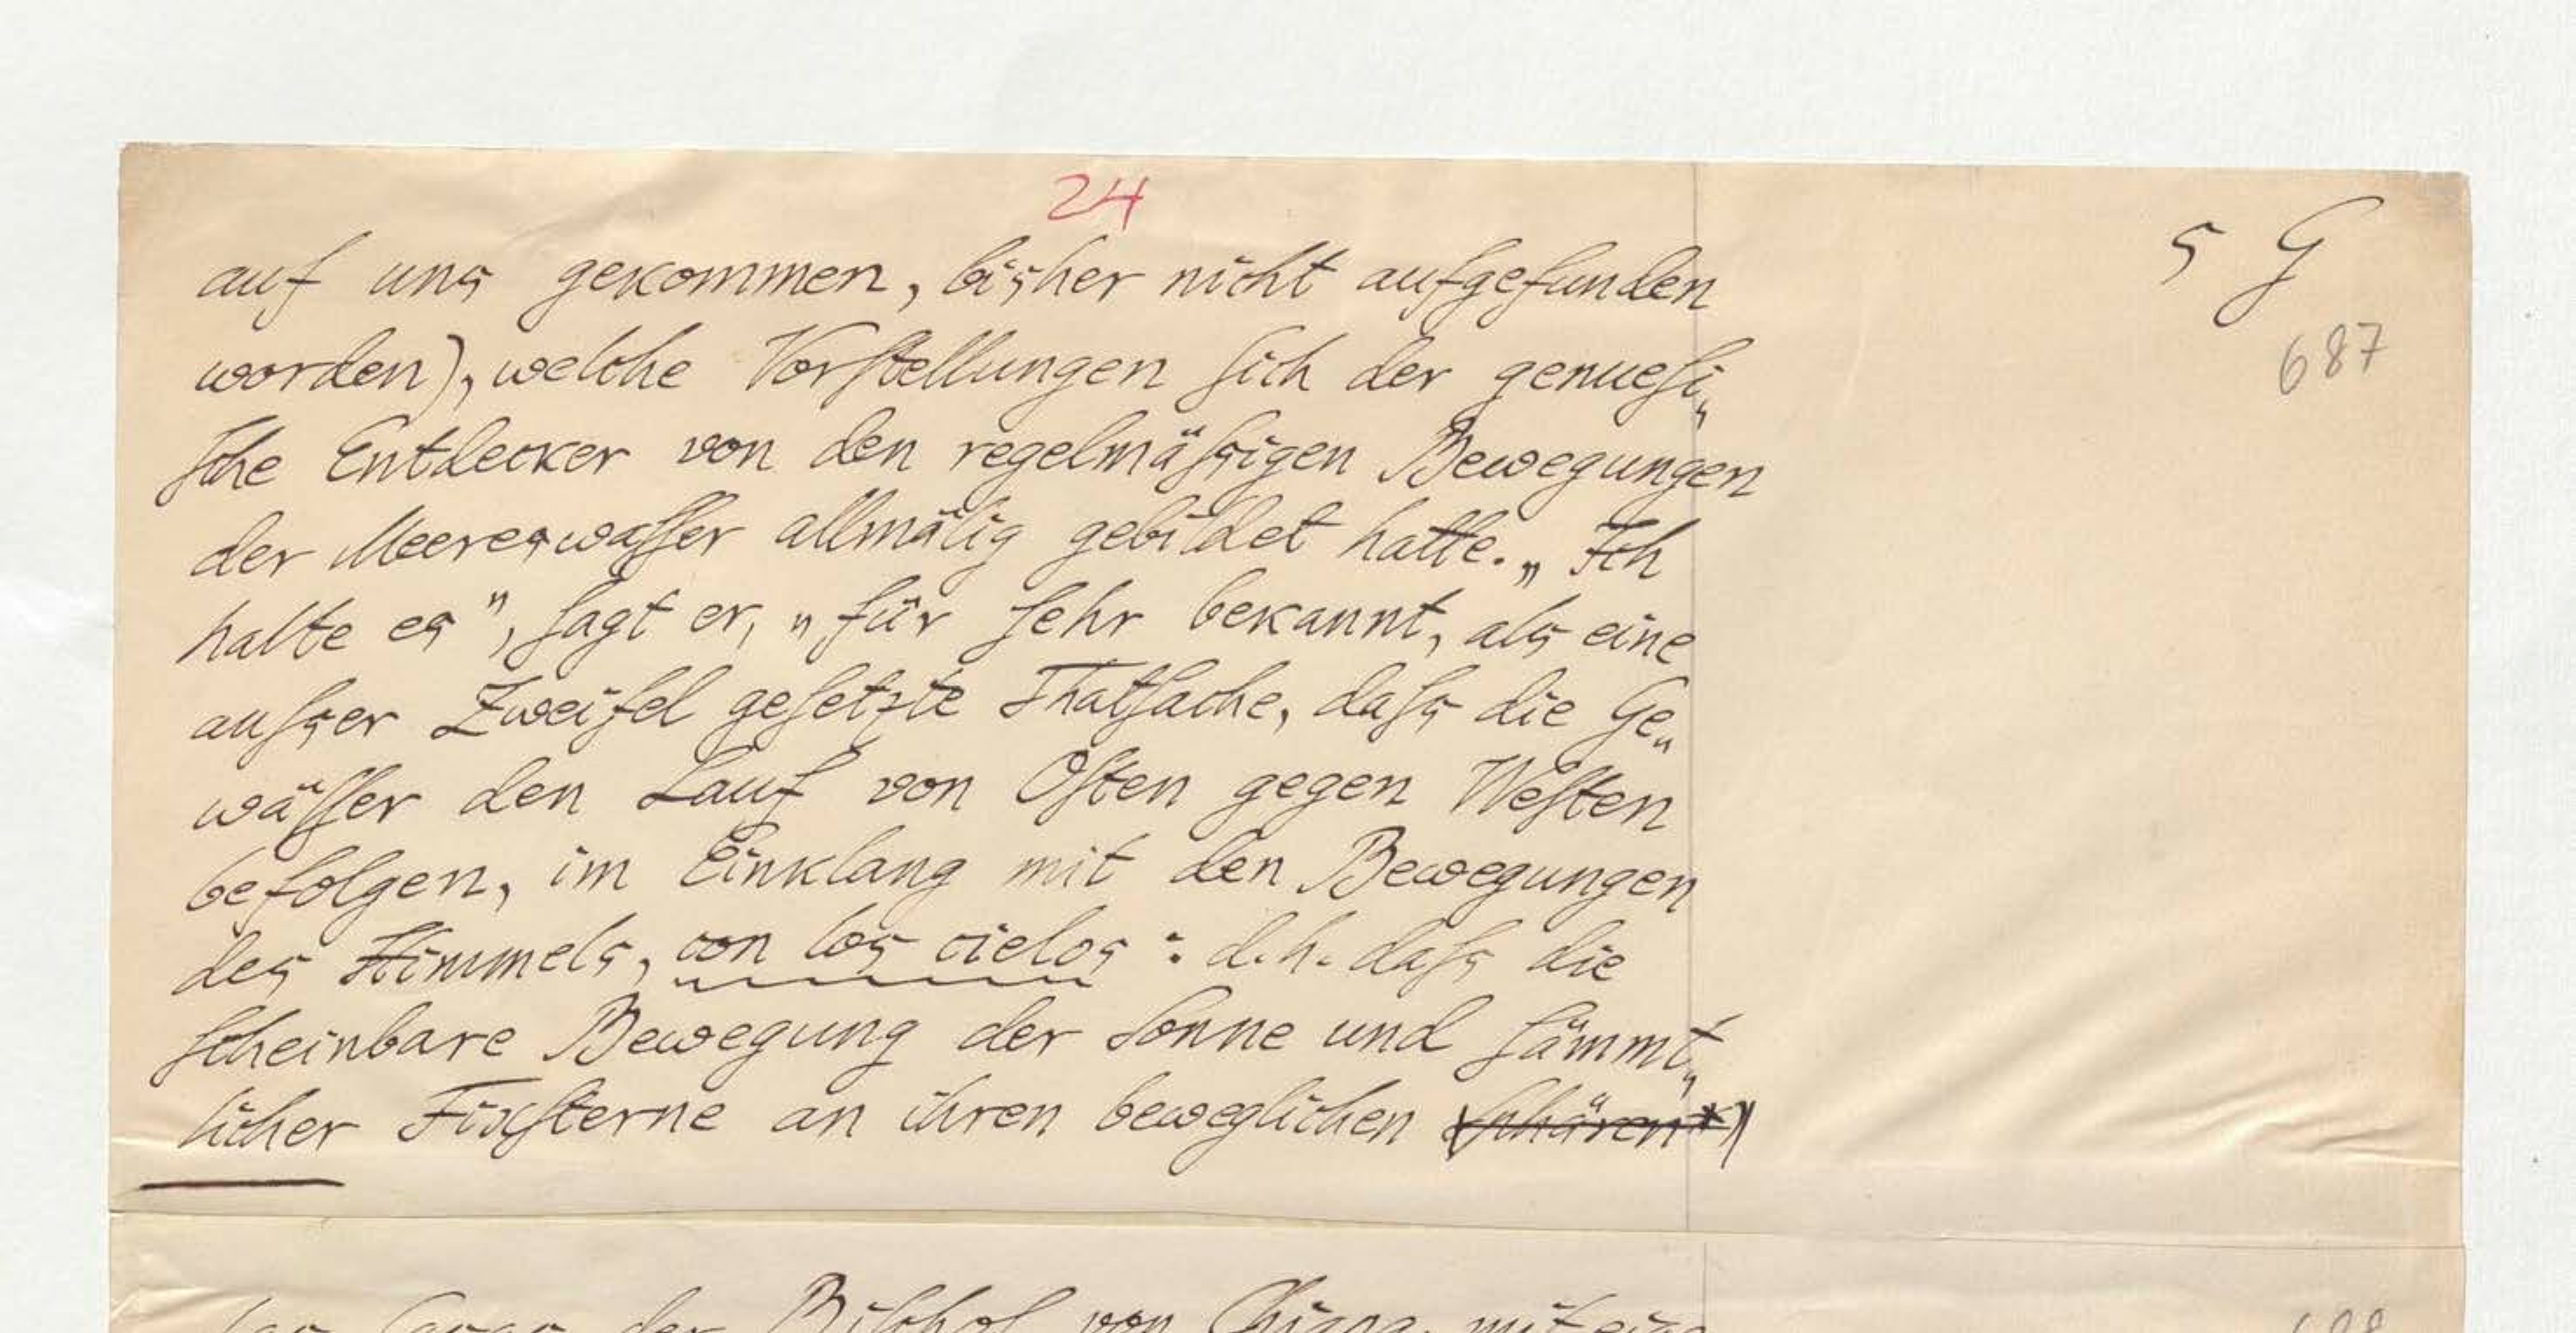 24
5 G
687
auf uns gekommen, bisher nicht aufgefunden
worden), welche Vorstellungen sich der genuesi„
sche Entdecker von den regelmäßigen Bewegungen
der Meereswasser allmälig gebildet hatte. „Ich
halte es", sagt er, „für sehr bekannt, als eine
außer Zweifel gesetzte Thatsache, daß die Ge„
wässer den Lauf von Osten gegen Westen
befolgen, im Einklang mit den Bewegungen
des Himmels, con los cielos: d. h. daß die
scheinbare Bewegung der Sonne und sämmt„
licher Fixsterne an ihren beweglichen Sphären*)
der Bischof von Chiapa, mit